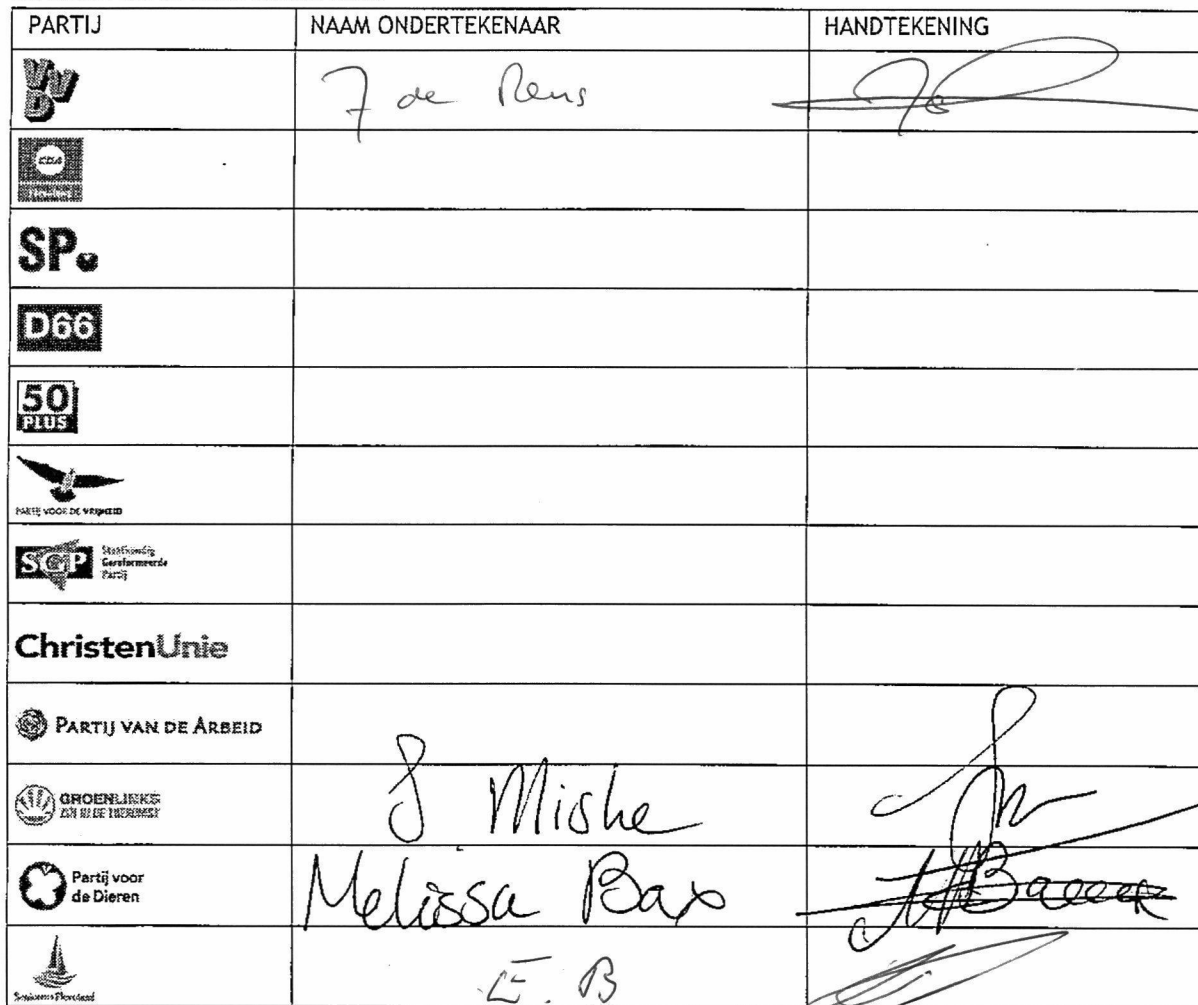 PARTIJ NAAM ONDERTEKENAAR HANDTEKENING
VVD
de
CDA
Flevoland
SP.
D66
50
PLUS
PARTIJ VOOR DE VRIJHEID
SGP Staatkundig
Gereformeerde
Partij
ChristenUnie
PARTIJ VAN DE ARBEID
GROENLINKS
Partij voor
de Dieren
Melissa Bax
Senioren Flevoland
E. B